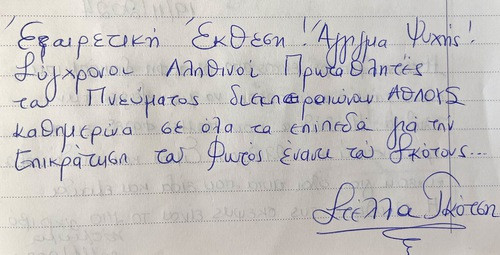 Εξαιρετική Έκθεση! Άγγιγμα Ψυχής!
Σύγχρονοι Αληθινοί Πρωταθλητές
του Πνεύματος διεκπεραιώνουν ΑΘΛΟΥΣ
καθημερινα σε όλα τα επίπεδα για την
Επικράτηση του Φωτός έναντι του Σκότους...
Στέλλα